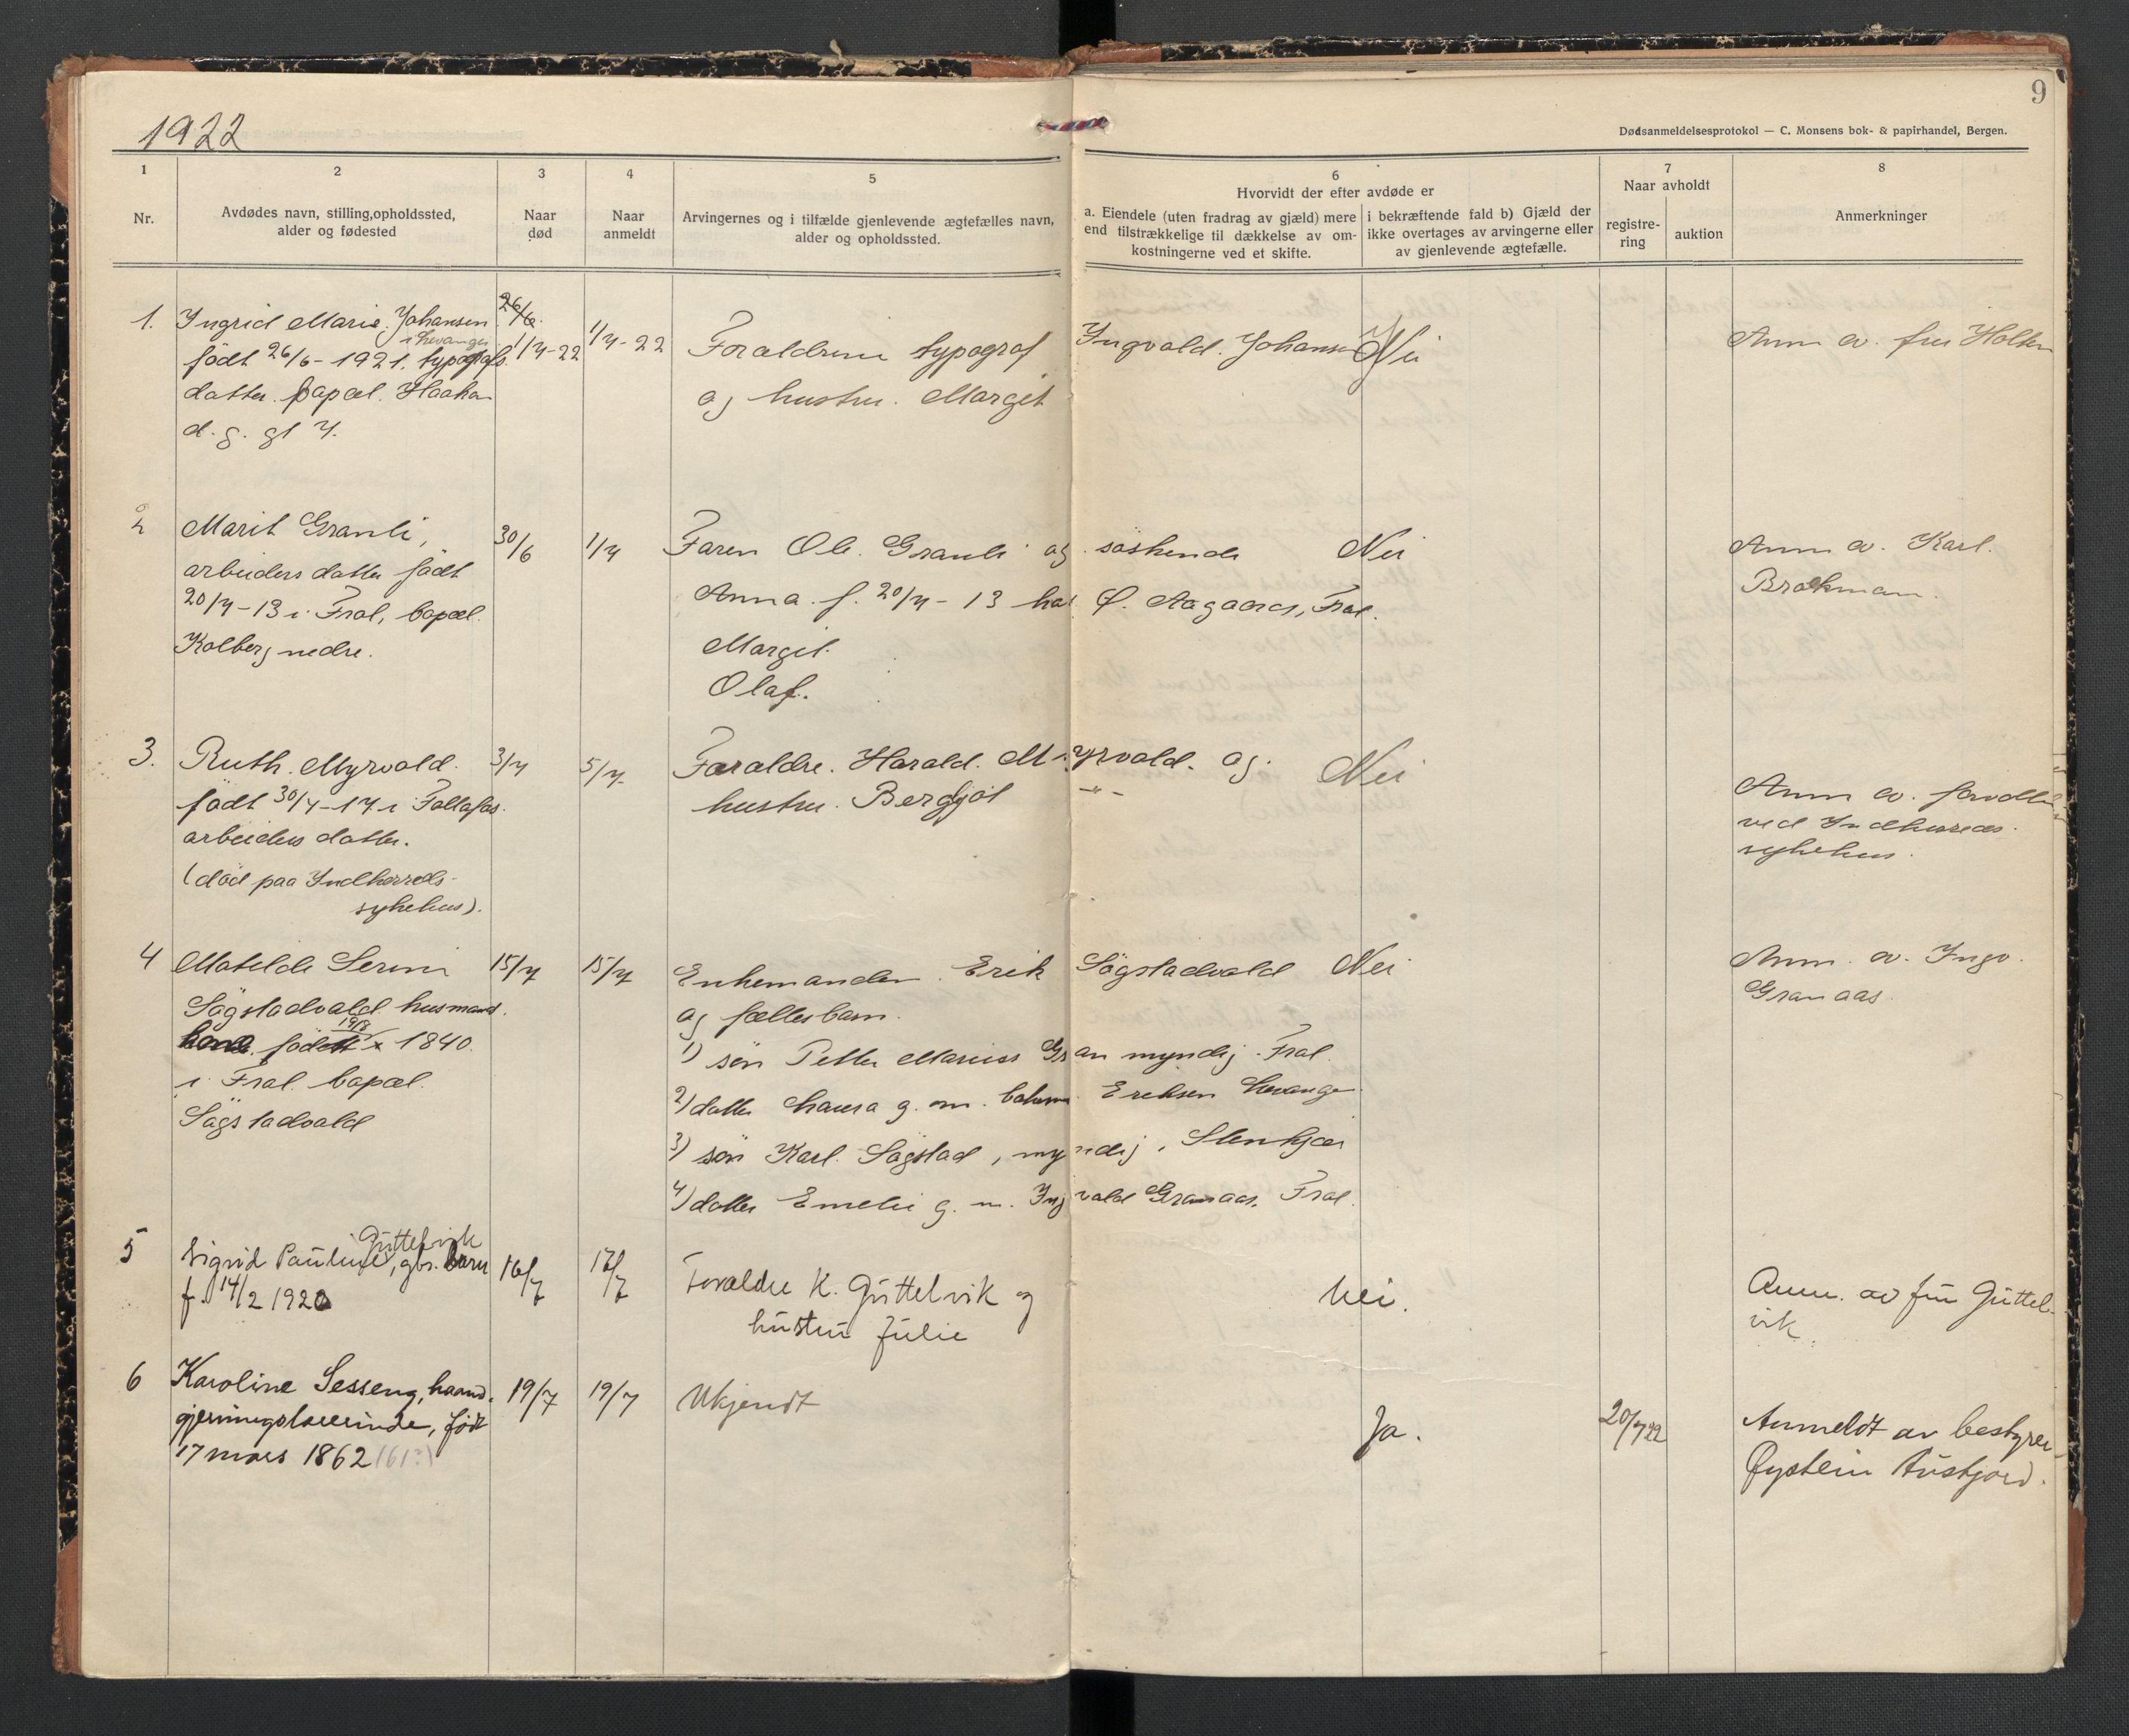 1922
9
Dødsanmeldelsesprotokol — C. Monsens bok- & papirhandel, Bergen.
1
Nr.
2
Avdødes navn, stilling, opholdssted,
alder og fødested
3
Naar
død
4
Naar
anmeldt
5
Arvingernes og i tilfælde gjenlevende ægtefælles navn,
alder og opholdssted.
6
Hvorvidt der efter avdøde er
a. Eiendele (uten fradrag av gjæld) mere
end tilstrækkelige til dækkelse av om-
kostningerne ved et skifte.
i bekræftende fald b) Gjæld der
ikke overtages av arvingerne eller
av gjenlevende ægtefælle.
7
Naar avholdt
registre-
ring
auktion
8
Anmerkninger
1. Ingrid Marie Johansen
i Levanger
født 26/6-1921. typografs
datter. bopæl. Haakon
d. g. gt 7.
26/6.
1/7-22
1/7-22
Forældrene typograf Ingvald. Johansen
og hustru. Margit
Nei
Anm av. fru Holten
2 Marit Granli,
arbeiders datter født
20/7-13 i Frol, bopæl.
Kolberg nedre.
30/6
1/7
Faren Ole. Granli og søskende
Anna. f. 20/7-13 hos O. Aagaard, Frol.
Margit.
Olaf.
Nei
Anm av. Karl.
Brakman.
3. Ruth. Myrvold.
født 30/7-17 i Follafos.
arbeiders datter.
(død paa Indherreds-
sykehus).
3/7
5/7
Forældre. Harald. Myrvold. og.
hustru. Bergljot -"-
Nei
Anm av.
ved Indherreds.
sykehus.
4 Matilde Serine
Sögstadvald husmands.
19/8
kone. født x 1840.
i Frol. bopæl.
Sögstadvald
15/7
15/7
Enkemanden. Erik Sögstadvald
og fællesbarn.
1) søn Petter Marius Gran myndig. Frol.
2) datter Laura g. m. Eriksen Levanger
3) søn Karl. Sögstad, myndig, Stenkjær
4) datter Emelie g. m. Ingvald Granaas, Frol.
Nei
Anm. av. Ingv.
Granaas.
5 Güttelvik
Sigrid Pauline, gbr. barn
f. 14/2 1920
16/7
17/7
Forældre K. Güttelvik og
hustru Julie
Nei.
Anm. av fru Güttel-
vik.
6 Karoline Sesseng, haand-
gjerningslærerinde, født
17 mars 1862 (61?)
19/7
19/7
Ukjendt
Ja.
20/7 22
Anmeldt av bestyrer
Øystein Austfjord.